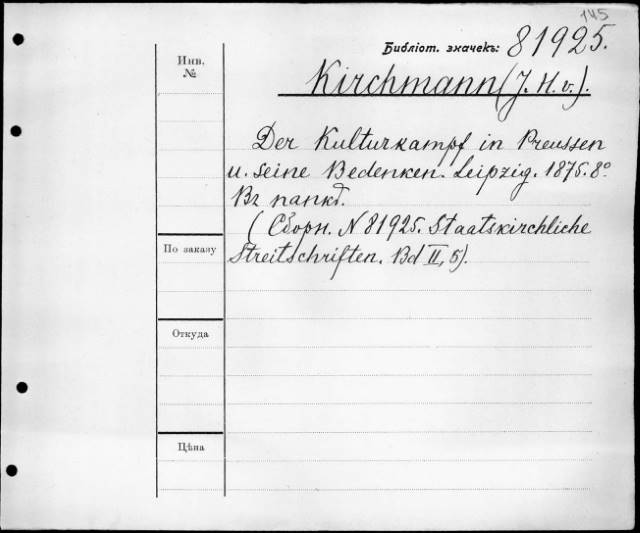 145
Библіот. значекъ: 81925.
Инв.
№
Kirchmann (J. H. v.).
Der Kulturkampf in Preussen
u. seine Bedenken. Leipzig. 1875. 8°
Вz папкѣ.
(Сборн. N 81925. Staatskirchliche
Streitschriften. Bd II, 5).
По заказу
Откуда
Цѣна